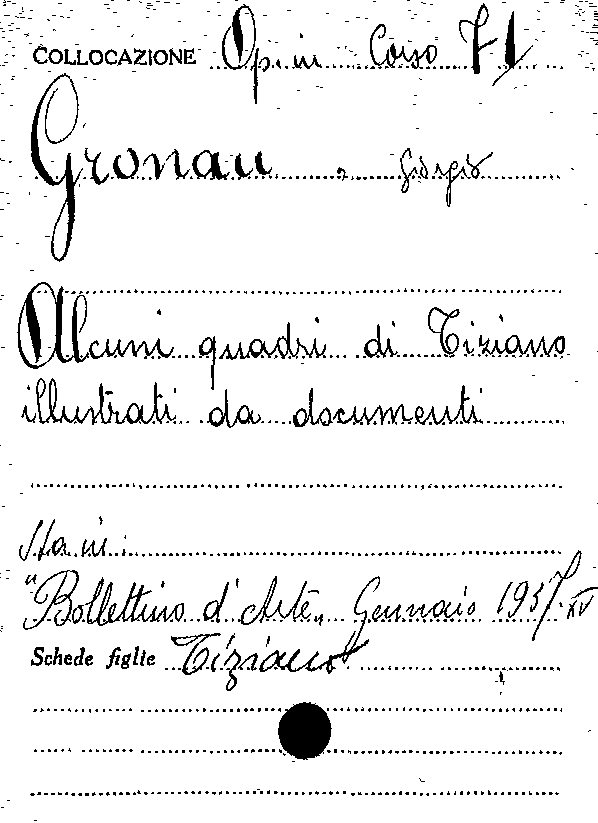 COLLOCAZIONE Op. in Corso 71
Gronau, Giorgio
Alcuni quadri di Tiziano
illustrati da documenti
Sta in:
"Bollettino d'Arte" Gennaio 1937. XV
Schede figlie Tiziano